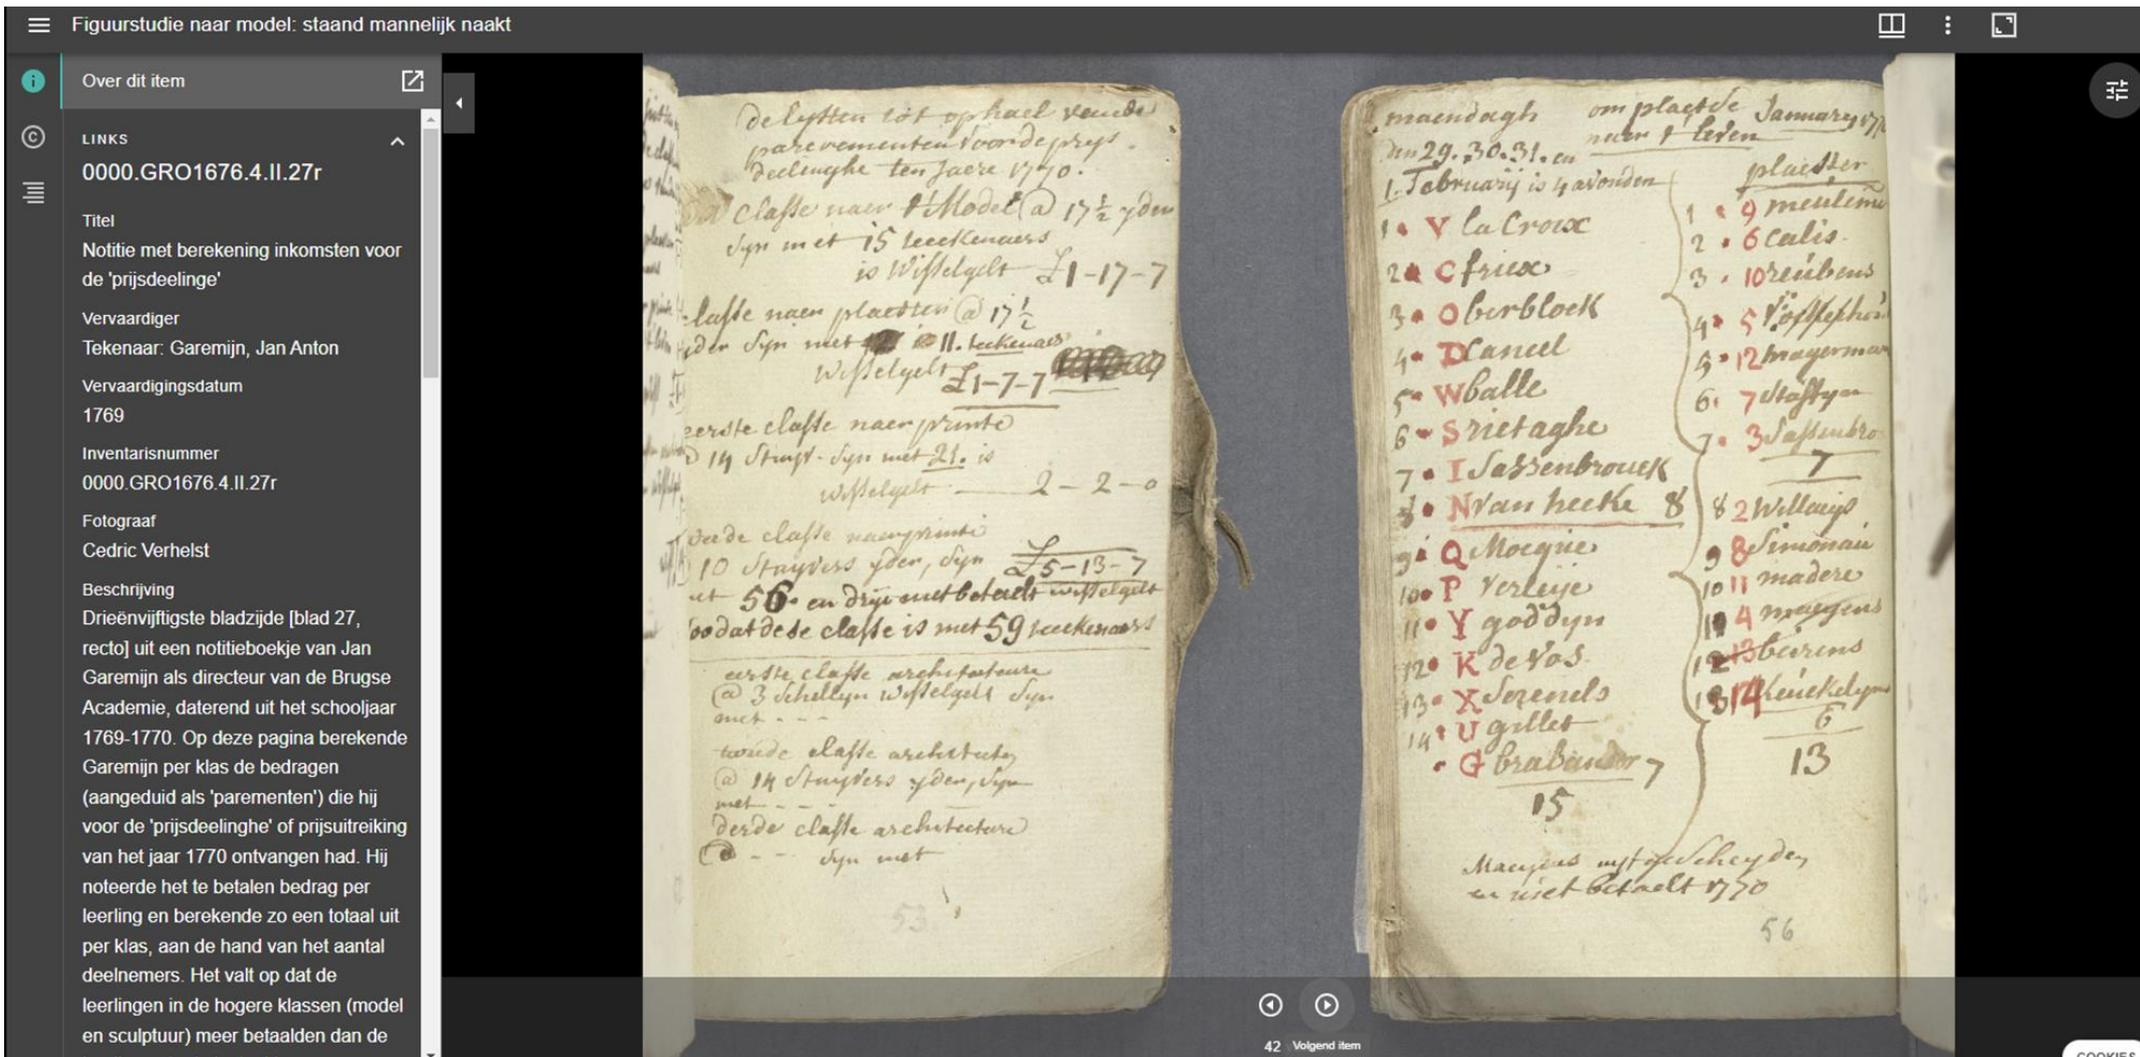 Figuurstudie naar model: staand mannelijk naakt
Over dit item
LINKS
0000.GRO1676.4.II.27r
Titel
Notitie met berekening inkomsten voor
de 'prijsdeelinge'
Vervaardiger
Tekenaar: Garemijn, Jan Anton
Vervaardigingsdatum
1769
Inventarisnummer
0000.GRO1676.4.II.27r
Fotograaf
Cedric Verhelst
Beschrijving
Drieënvijftigste bladzijde [blad 27,
recto] uit een notitieboekje van Jan
Garemijn als directeur van de Brugse
Academie, daterend uit het schooljaar
1769-1770. Op deze pagina berekende
Garemijn per klas de bedragen
(aangeduid als 'parementen') die hij
voor de 'prijsdeelinghe' of prijsuitreiking
van het jaar 1770 ontvangen had. Hij
noteerde het te betalen bedrag per
leerling en berekende zo een totaal uit
per klas, aan de hand van het aantal
deelnemers. Het valt op dat de
leerlingen in de hogere klassen (model
en sculptuur) meer betaalden dan de
de lysten tot ophael vande
parementen voor de prys
deelinghe ten Jaere 1770.
Classe naer 't Model @ 17 ½ yder
syn met 15 teeckenaers
is Wisselgelt £1-17-7
classe naer plaester @ 17 ½
yder syn met 11. teekenaers
wisselgelt £1-7-7
eerste classe naer printe
@ 14 stuyv. syn met 21. is
wisselgelt 2-2-0
classe naer printe
10 Stuyvers yder, syn £5-13-7
56 en drye niet betaelt wisselgelt
soo dat dese classe is met 59 teekenaers
eerste classe architecture
@ 3 Schellyn wisselgelt syn
met - - -
tweede classe architecture
@ 14 Stuyvers yder, syn
met - - -
derde classe architecture
@ - - syn met
53
maendagh om plaetse January 17
naer 't leven
den 29. 30. 31. en
1. February is 4 avonden
1 V la Croix
2 C friex
3 O berblock
4 D Cancel
5 W balle
6 S rietaghe
7 I Sassenbrouck
8 N van hecke 8
9 Q Mocqué
10 P Verleije
11 Y goddyn
12 K de Vos
13 X Serenels
14 U gillet
G brabander 7
15
plaester
1 9
2 6 Calis
3 10 reubens
4 5
5 12 mayerman
6 7 Stassyn
7 3 Sassenbro
7
8 2 Willaeys
9 8 Simonau
10 11 madere
11 4 maeyens
12 13 beirens
13 14
6
13
Maeyens uyt gescheyden
en niet betaelt 1770
56
42
Volgend item
COOKIES